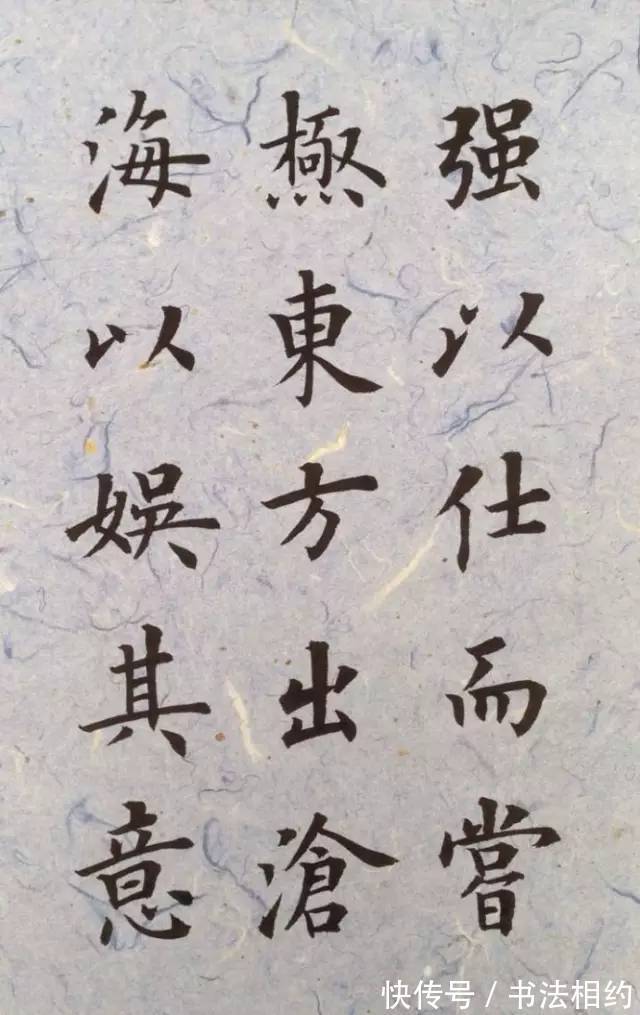 强以仕而嘗
極東方出滄
海以娱其意
快传号 / 书法相约